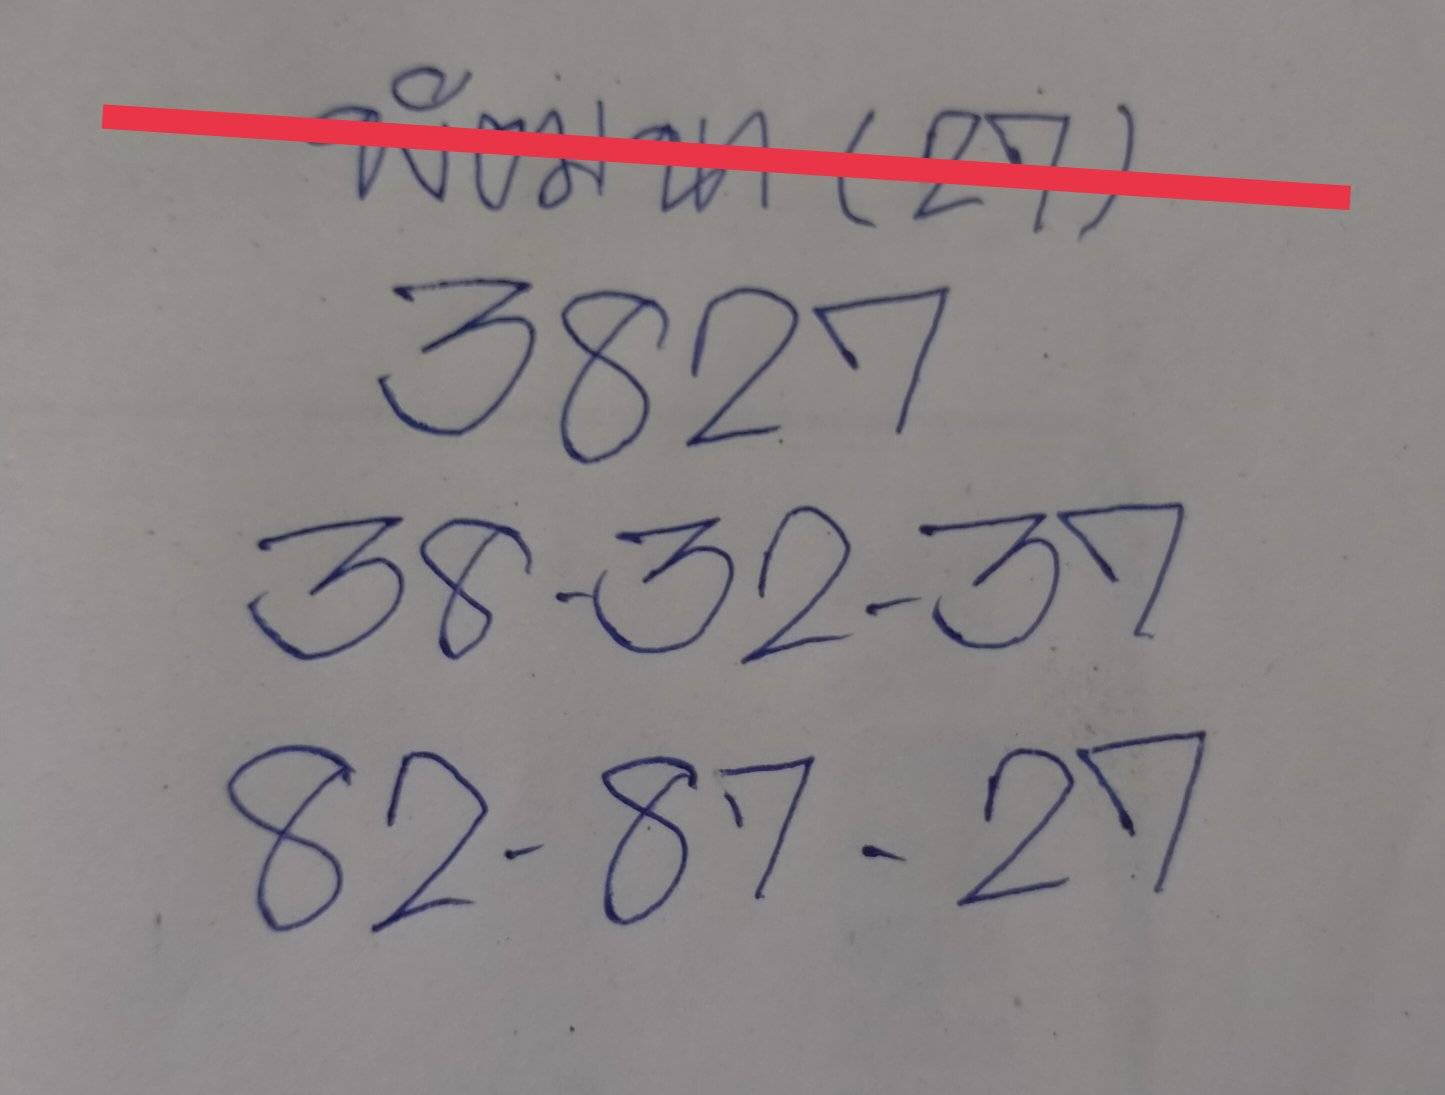 (27)
3827
38-32-37
82-87-27